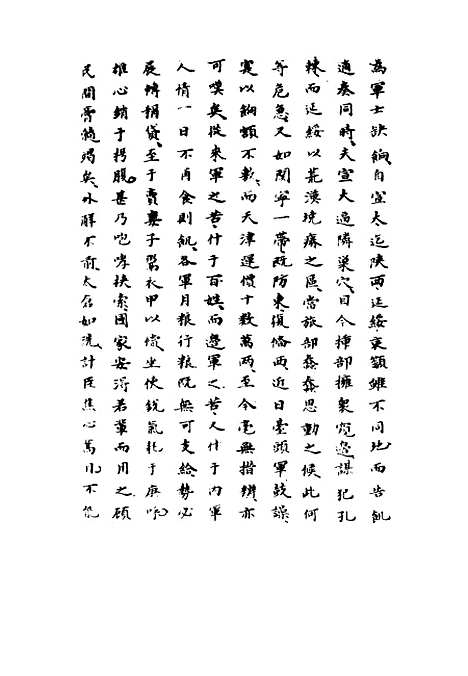 為軍士缺餉自宣大迄陝西延綏衷籲雖不同地而告飢
適奏同時夫宣大逼隣巢穴目今插部擁衆窺邊謀犯孔
棘而延綏以荒漠墝瘠之區當旅部蠢蠢思動之候此何
等危急又如関寧一帶既防東復偹西近日臺頭軍鼓譟
寔以餉額不敷而天津運價十數萬兩至今毫無措辦亦
可嘆矣從來軍之苦什于百姓而邊軍之苦人什于内軍
人情一日不再食則飢各軍月粮行粮既無可支給勢必
展轉捐貸至于賣妻子鬻衣甲以 坐使銳氣耗于庚呼
雄心銷于枵腹甚乃咆哮挟索國家安得若輩而用之顧
民間膏髓竭矣外解不前太倉如洗計臣焦心萬 不能